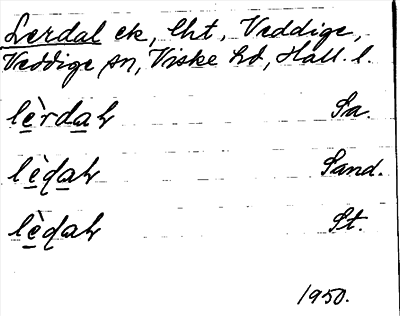 Lerdal ek, Cht, Veddige,
Veddige sn, Viske hd, Hall. l.
lèrdaɫ Sa.
lèḍaɫ Sand.
lèḍaɫ St.
1950.